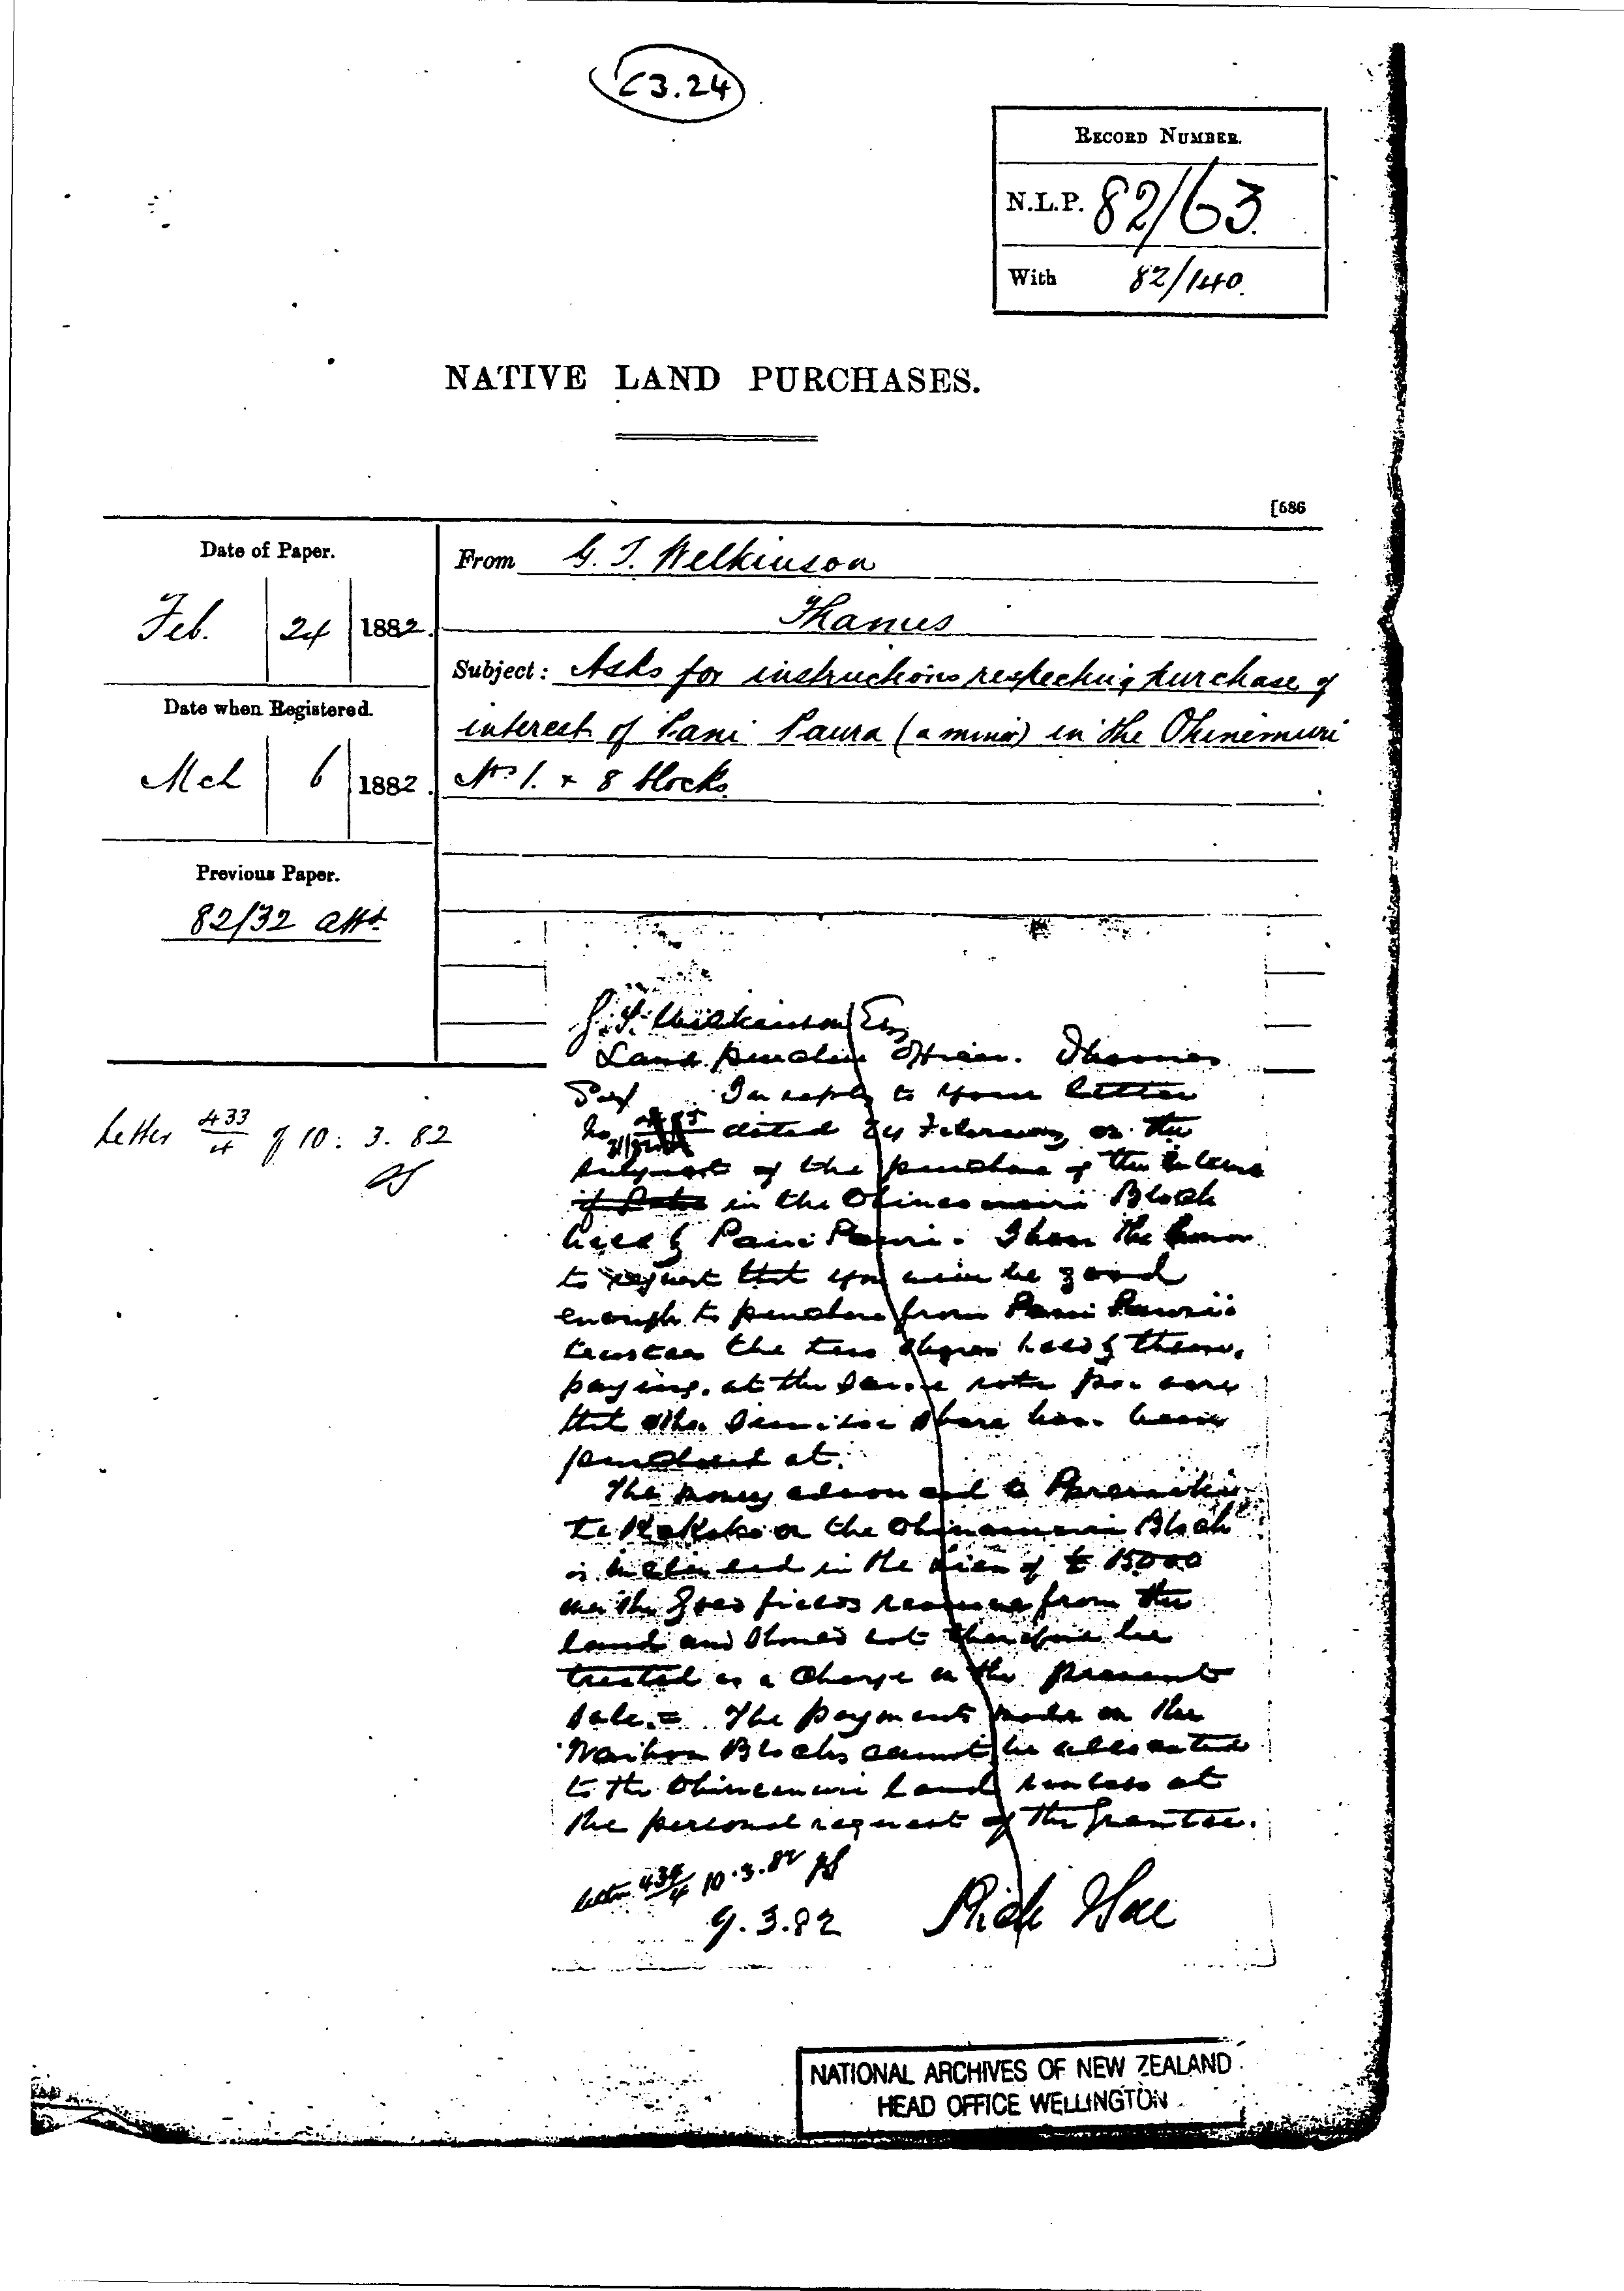 C3.24
RECORD NUMBER.
N.L.P. 82/63.
With 82/140.
NATIVE LAND PURCHASES.
[686
Date of Paper.
Feb. 24 1882.
Date when Registered.
Mch 6 1882.
Previous Paper.
82/32 attd.
From G. T. Wilkinson
Thames
Subject: Asks for instructions respecting purchase of
interest of Pani Paura (a minor) in the Ohinemuri
Nos 1. & 8 blocks.
Letter 433/4 of 10. 3. 82
G. T. Wilkinson Esq
Land purchase Officer. Thames
Sir In reply to your letter
No dated 24 February on the
subject of the purchase of the interest
in the Ohinemuri Block
held by Pani Pauri. I have the honor
to request that you will be good
enough to purchase from Pani Pauri's
trustees the two shares held by them,
paying at the same rate per acre
that other similar share have been
purchased at.
The money advanced to
on the Ohinemuri Block
is included in the lien of £ 15000
on the Gold fields revenue from the
land and should not therefore be
treated as a charge on the present
sale. = The payments made on the
Blocks cannot be allocated
to the Ohinemuri land unless at
the personal request of the Grantee.
letter 434/4 10.3.82
9.3.82
NATIONAL ARCHIVES OF NEW ZEALAND
HEAD OFFICE WELLINGTON